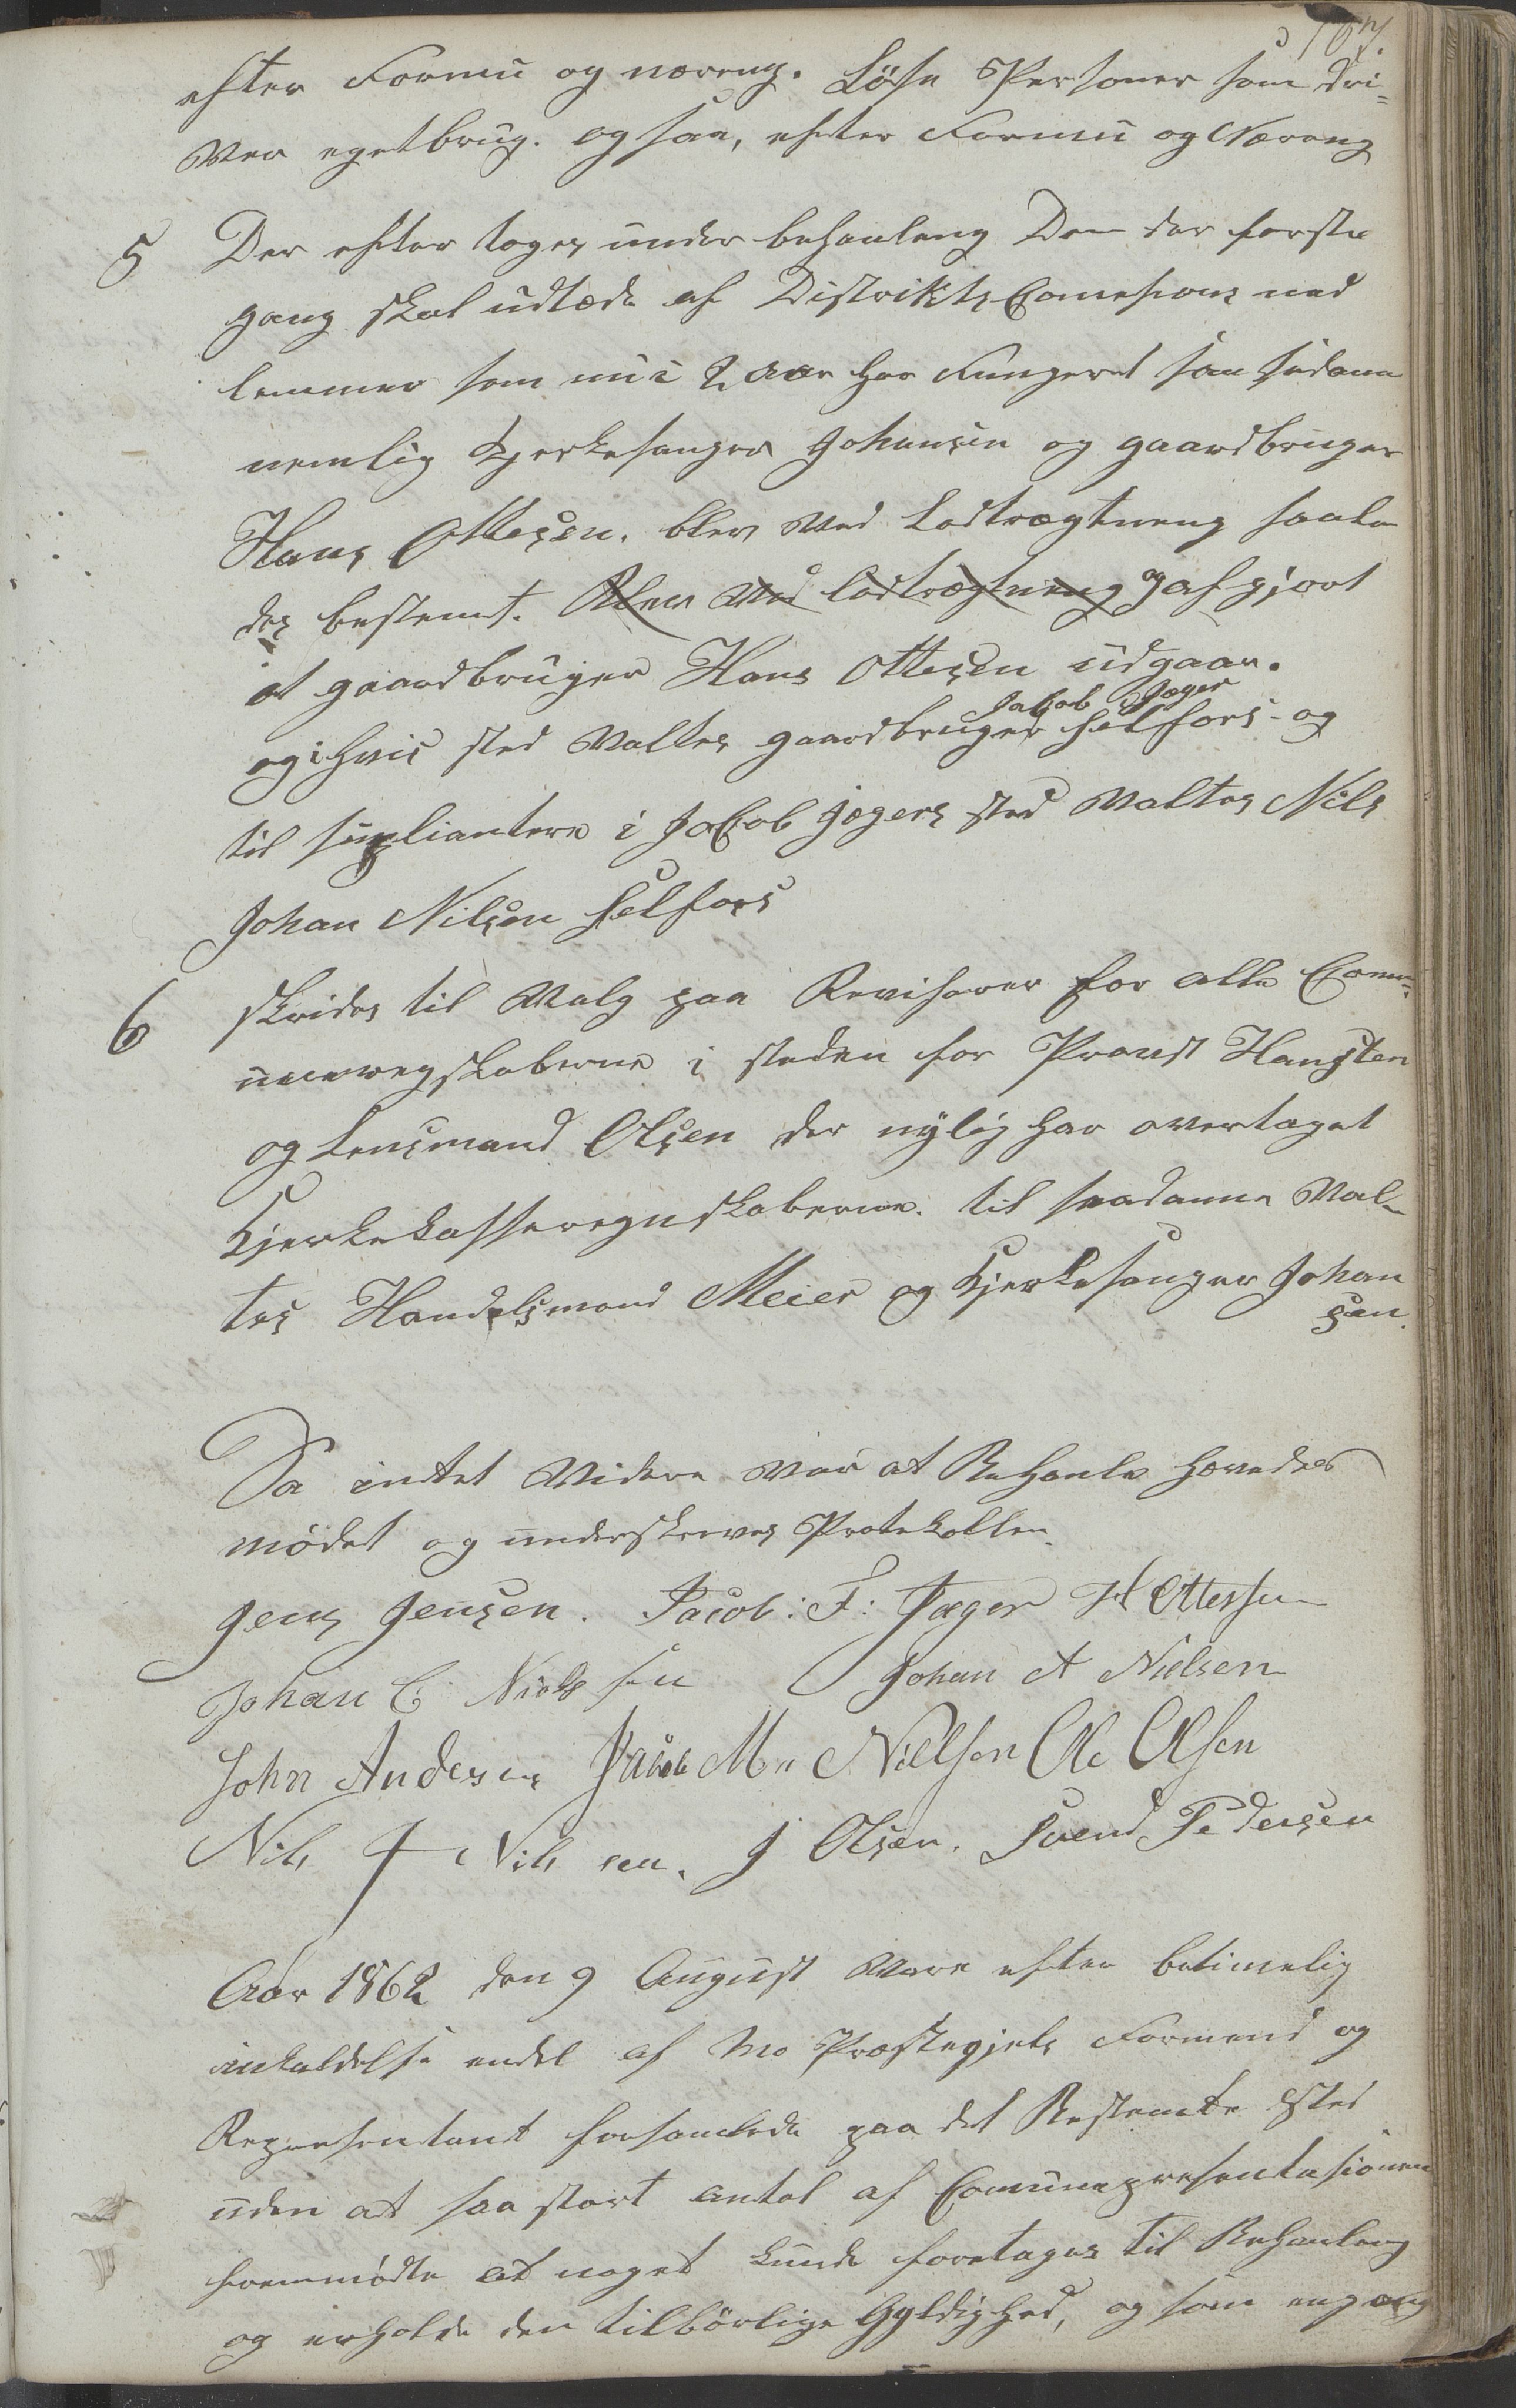 167.
efter Formu og næreng. Løse Personer som dri=
ver egetbrug. og saa, efter Formu og Næreng
5 Der efter toges under behanleng Den der første
gang skal udtræde af Distrikts Comesions med
lemmer som nu i 2 aar har Fungeret som sådann
nemlig Kjerkesanger Johansen og gaardbruger
Hans Ottesen. blev ved Lodtrægtneng saale
des bestemt. Blev ved lodtrægtneng og afgjort
at gaardbruger Hans Ottesen udgaar.
Jakob Jæger
og i hvis sted Valtes gaardbruger Selfors og
til supliantere i Jacob Jægers sted Valtes Nils
Johan Nilsen Selfors
6 skrides til Valg paa Revisorer for alle Com=
uneregskaberne i steden for Provst Hangsten
og Lensmand Olsen der nylig har overtaget
Kjerkekasseregnskaberne. til saadanne Val
tes Handelsmand Meier og Kjerkesanger Johan
sen.
Da intet Videre var at Behanle hævedes
mödet og underskreves Protekollen.
Jens Jensen. Jacob: F: Jæger H Ottessen
Johan C Nielssen Johan A Nielsen
John Andersen Jacob M. Nielsen Ole Olsen
Nils J Nilsen. J Olsen. Svend Pedersen
Aar 1862 den 9 August Vare efter betimelig
inkaldelse endel af Mo Præstegjels Formend og
Representant forsamlede paa det Bestemte Sted
uden at saa stort antal af Comunepresentasionen
fremmødte at noget kunde foretages til Behanleng
og erholde den tilbörlige Gyldighed, og som engang